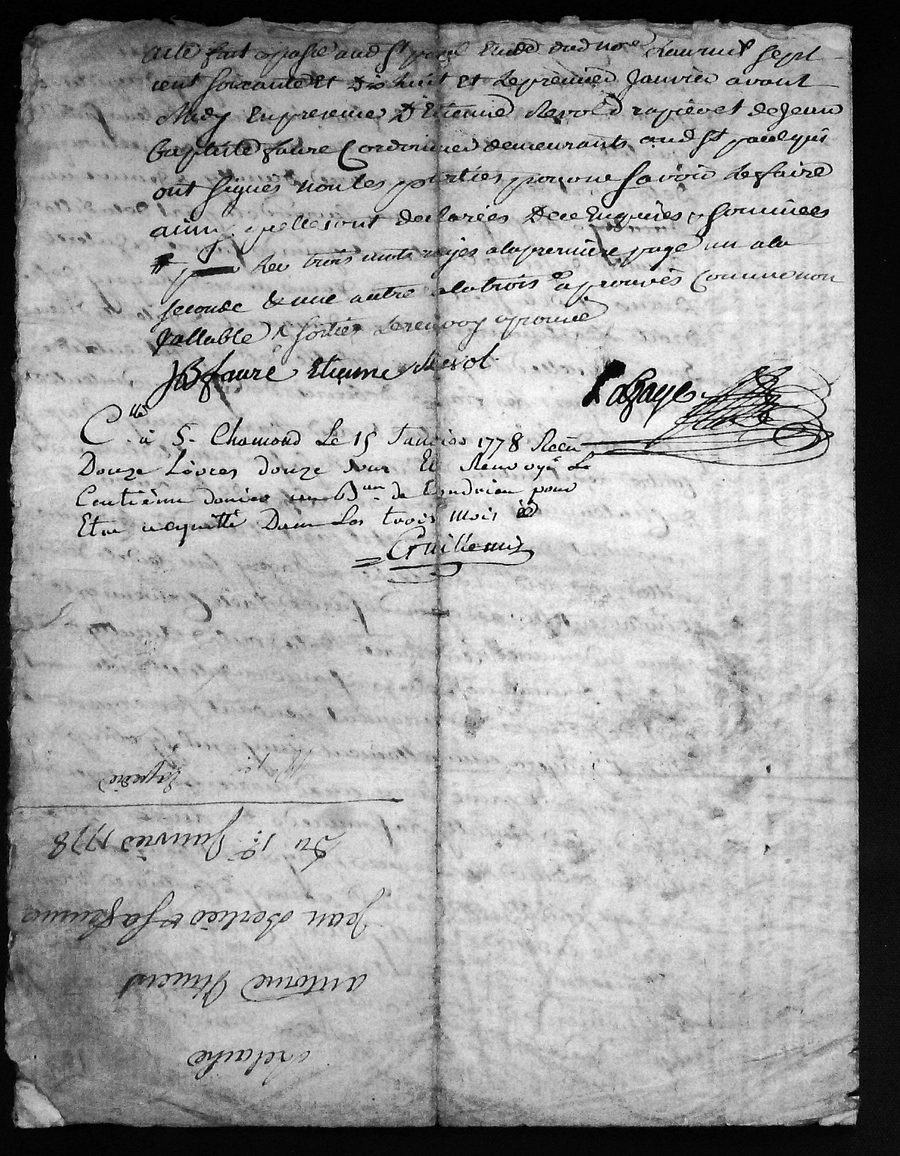 acte fait et passé aud St paul Etude dud no.re L'an mil sept
cent soixante et Dix huit et Le premier Janvier avant
Midy En presence D'Etienne Revol drapier et de Jean
Baptiste faure Cordonnier demeurants aud St paul qui
ont signés non les parties pour ne savoir Le faire
ainsy qu'elles ont declarées De ce Enquises & sommées
Les trois mots rayes a la premiere page un a la
seconde & une autre a la trois.e aprouvés Comme non
Vallable & Le renvoy aprouvé
JB faure Etienne Revol
Lafaye
C.lle à S. Chamond Le 15 Janvier 1778 Reçu
Douze Livres douze sous Et Renvoyé Le
Centième denier au B.au de Condrieu pour
Etre acquitté Dans Les trois mois
Guillemin
Du 1.er Janvier 1778
Jean & Sa femme
antoine